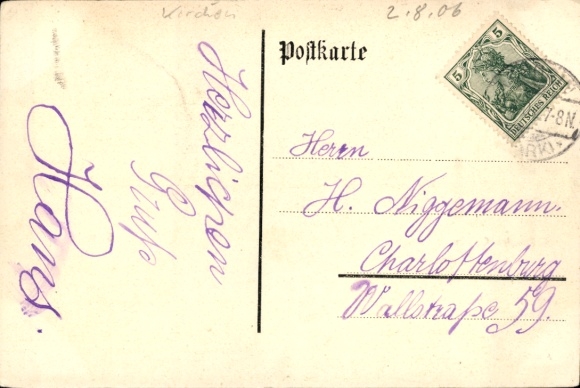 Kirchen
2.8.06
Postkarte
5
5
DEUTSCHES REICH
7-8N.
Herrn
H. Niggemann.
Charlottenburg
Wallstraße 59.
Herzlichen
Gruß
Hans.